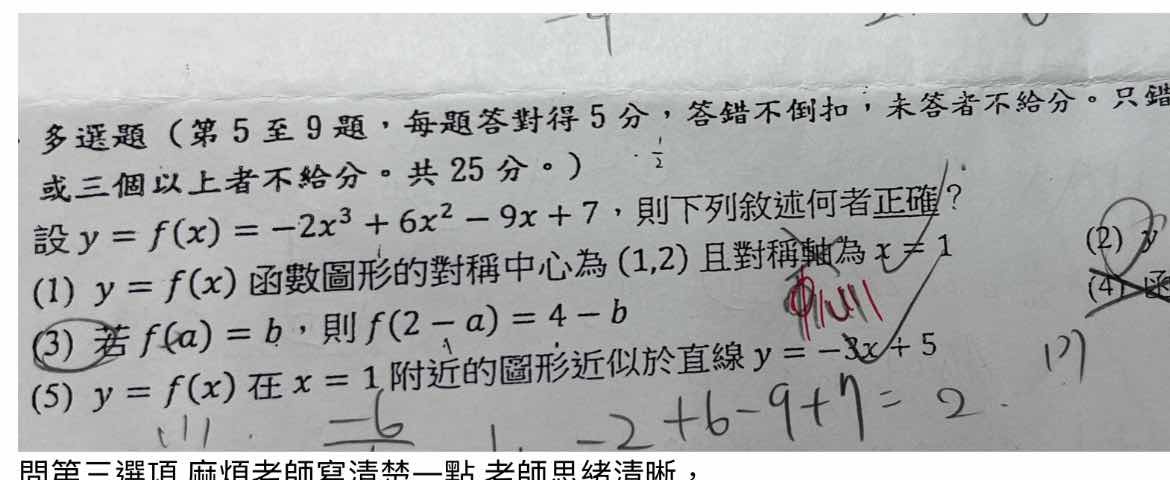 -4
多選題（第 5 至 9 題，每題答對得 5 分，答錯不倒扣，未答者不給分。只錯
或三個以上者不給分。共 25 分。）
1/2
設 y = f(x) = -2x³ + 6x² - 9x + 7，則下列敘述何者正確？
(1) y = f(x) 函數圖形的對稱中心為 (1,2) 且對稱軸為 x = 1
(2) y
(3) 若 f(a) = b，則 f(2 - a) = 4 - b
(4) 函
(5) y = f(x) 在 x = 1 附近的圖形近似於直線 y = -3x + 5
(1). -6 -2+6-9+7=2.
問第三選項 麻煩老師寫清楚一點 老師思緒清晰，